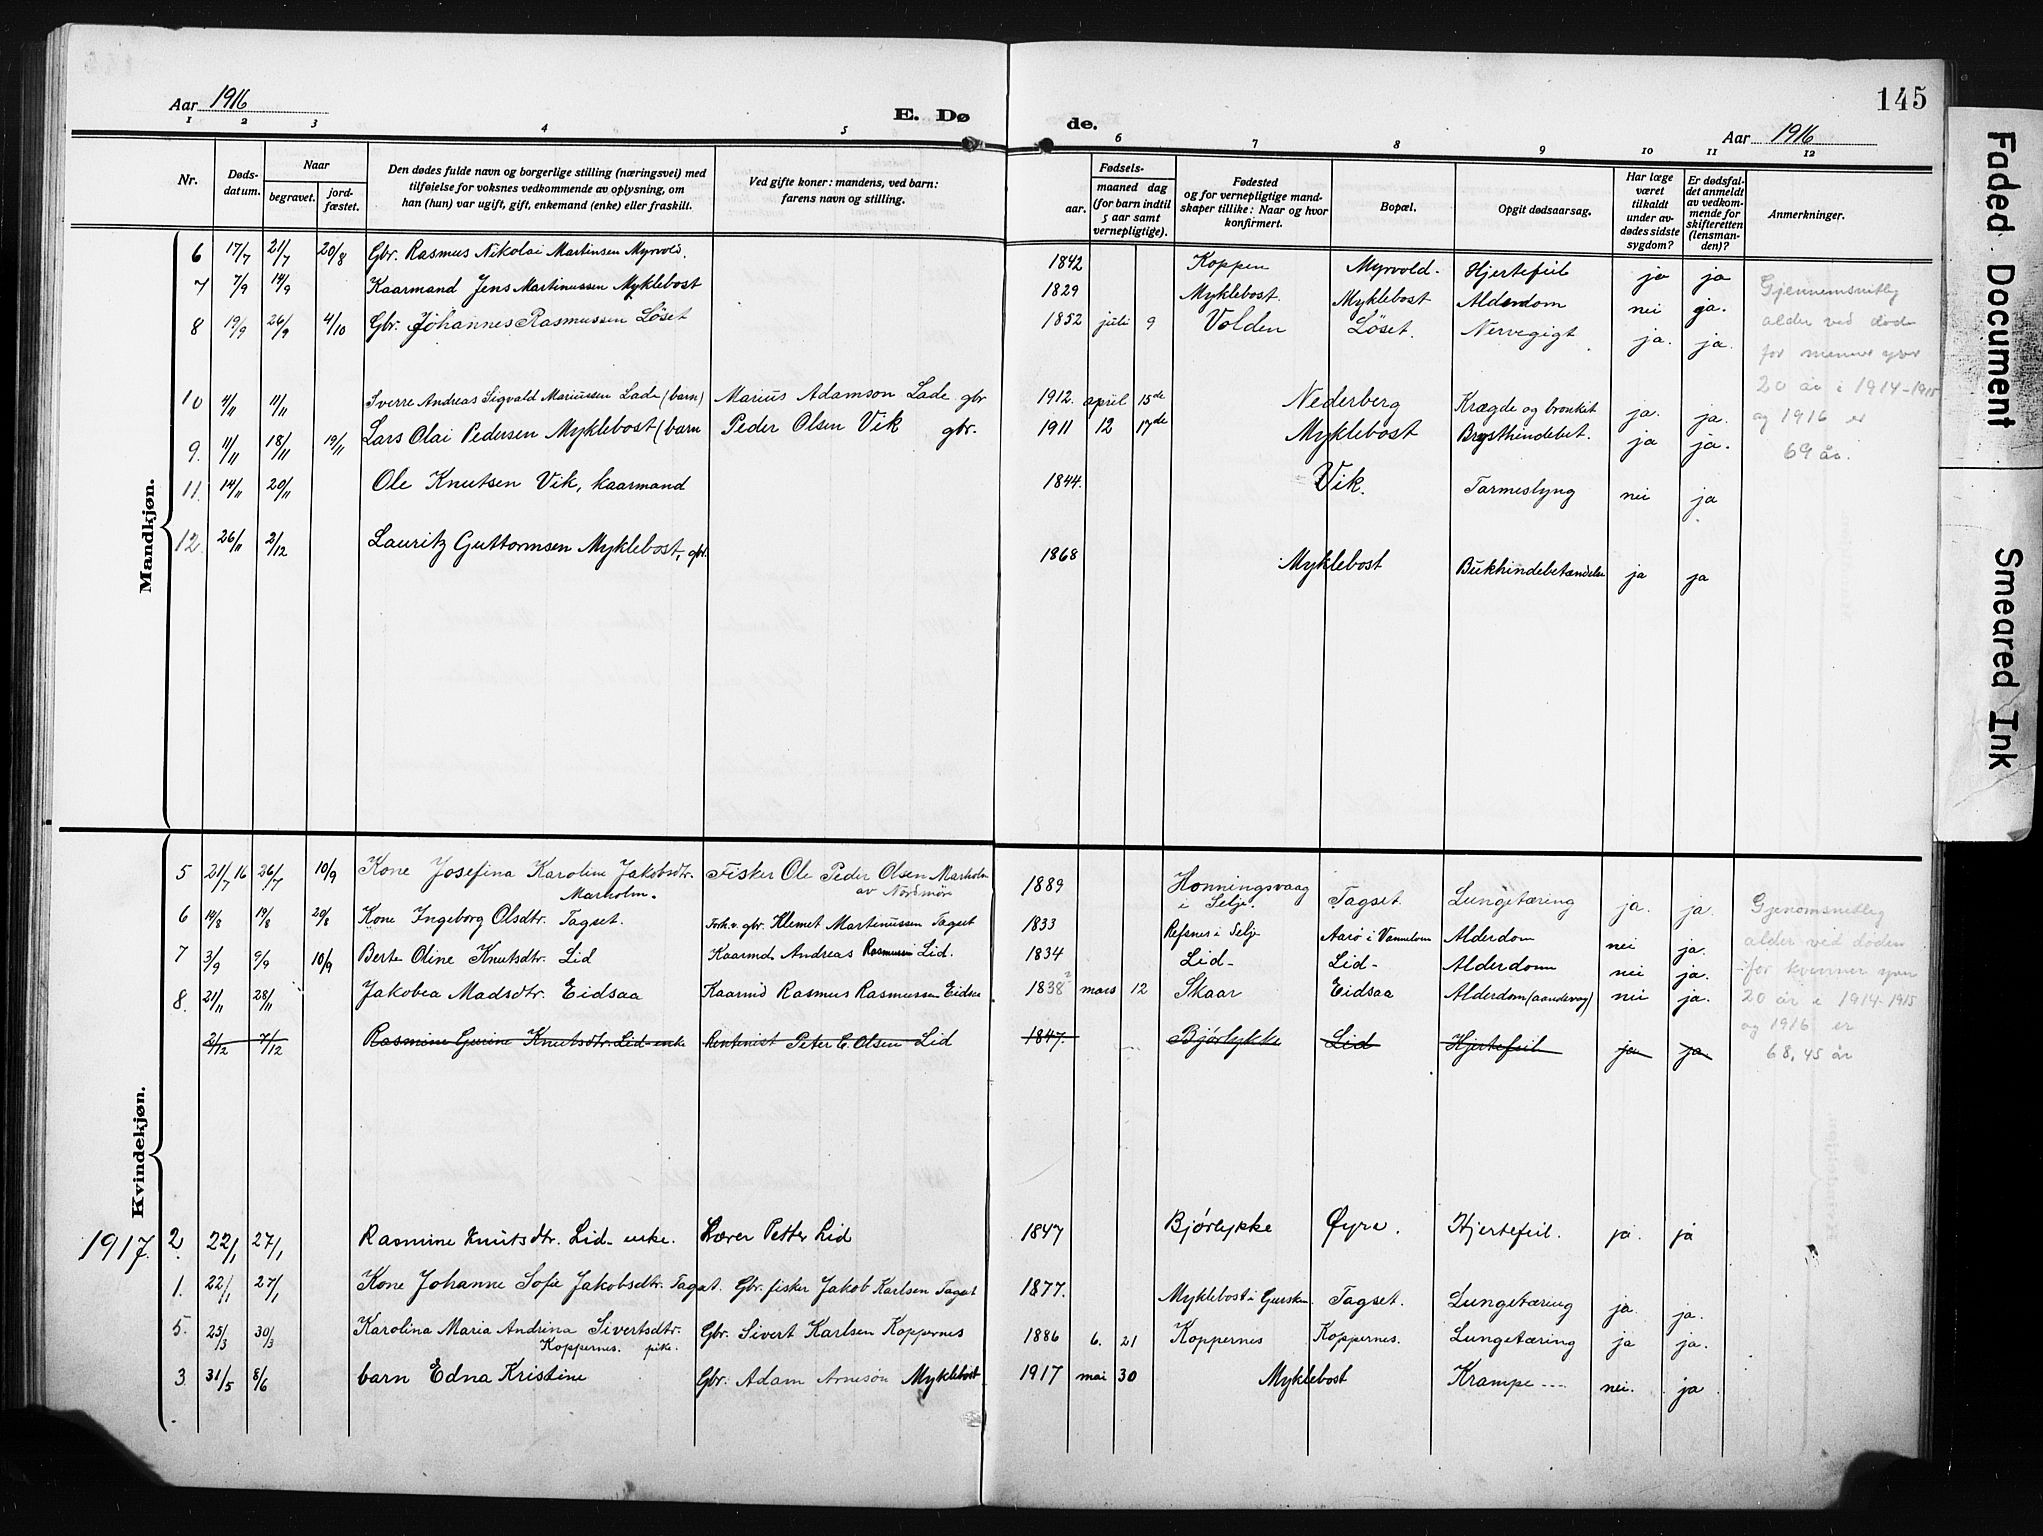 Aar 1916
E. Døde.
145
Aar 1916
1 2 3 4 5 6 7 8 9 10 11 12
Nr.
Døds-datum.
Naar
begravet.
jord-fæstet.
Den dødes fulde navn og borgerlige stilling (næringsvei) med
tilføielse for voksnes vedkommende av oplysning, om
han (hun) var ugift, gift, enkemand (enke) eller fraskilt.
Ved gifte koner: mandens, ved barn:
farens navn og stilling.
Fødsels-
aar.
maaned dag
(for barn indtil
5 aar samt
vernepligtige).
Fødested
og for vernepligtige mand-
skaper tillike: Naar og hvor
konfirmert.
Bopæl.
Opgit dødsaarsag.
Har læge
været
tilkaldt
under av-
dødes sidste
sygdom?
Er dødsfal-
det anmeldt
av vedkom-
mende for
skifteretten
(lensman-
den)?
Anmerkninger.
Mandkjøn.
6 17/7 21/7 20/8 Gbr. Rasmus Nikolai Martinsen Myrvold. 1842 Koppen Myrvold. Hjertefeil ja ja
7 7/9 14/9 Kaarmand Jens Martinussen Myklebost 1829 Myklebost. Myklebost Alderdom nei ja.
8 19/9 26/9 4/10 Gbr. Johannes Rasmussen Løset 1852 juli 9 Volden Løset. Nervegigt ja. ja.
10 4/11 11/11 Sverre Andreas Sigvald Mariussen Lade (barn) Marius Adamson Lade gbr 1912. april 15de Nederberg Krægde og bronkit ja. ja.
9. 11/11 18/11 19/11 Lars Olai Pedersen Myklebost (barn Peder Olsen Vik gbr. 1911 12 17de Myklebost Brysthindebet. ja ja.
11. 14/11 20/11 Ole Knutsen Vik, kaarmand 1844. Vik. Tarmeslyng nei ja
12. 26/11 2/12 Lauritz Guttormsen Myklebost, gbr. 1868 Myklebost Bukhindebetændelse ja ja
Gjennemsnitlig
alder ved død
for menner yver
20 år i 1914-1915
og 1916 er
69 år.
Kvindekjøn.
5 21/7 16 26/7 10/9 Kone Josefina Karoline Jakobsdtr. Fisker Ole Peder Olsen Marholm 1889 Honningsvaag Tagset. Lungetæring ja. ja.
Marholm. av Nordmøre i Selje.
6 14/8 19/8 20/8 Kone Ingeborg Olsdtr. Tagset. Forh.v. gbr. Klemet Martinussen Tagset 1833 Refsnes i Selje Aarø i Vannelven Alderdom nei ja.
7 3/9 9/9 10/9 Berte Oline Knutsdtr. Lid Kaarmd. Andreas Rasmussen Lid. 1834 Lid- Lid- Alderdom nei ja.
8. 21/11 28/11 Jakobea Madsdtr. Eidsaa Kaarmd Rasmus Rasmussen Eidsaa 1838 mars 12 Skaar Eidsaa Alderdom (aandevag) nei ja.
2/12 7/12 Rasmine Gurine Knutsdtr. Lid- enke Rentenist Peter C. Olsen Lid 1847. Bjørlykke Lid Hjertefeil ja ja
Gjenomsnitlig
alder ved døden
for kvinner yver
20 år i 1914-1915
og 1916 er
68,45 år
1917. 2. 22/1 27/1 Rasmine Knutsdtr. Lid- enke. Lærer Petter Lid 1847 Bjørlykke Øyre. Hjertefeil. ja. ja
1. 22/1 27/1 Kone Johanne Sofie Jakobsdtr. Tagset. Gbr. fisker Jakob Karlsen Tagset 1877. Myklebost i Gursken. Tagset. Lungetæring ja. ja.
5. 25/3 30/3 Karolina Maria Andrina Sivertsdtr. Gbr. Sivert Karlsen Koppernes 1886 6. 21 Koppernes Koppernes. Lungetæring ja ja.
Koppernes. pike.
3. 31/5 8/6 barn Edna Kristine Gbr. Adam Arnesøn Myklebost 1917 mai 30 Myklebost Krampe --- nei. ja
Faded Document
Smeared Ink